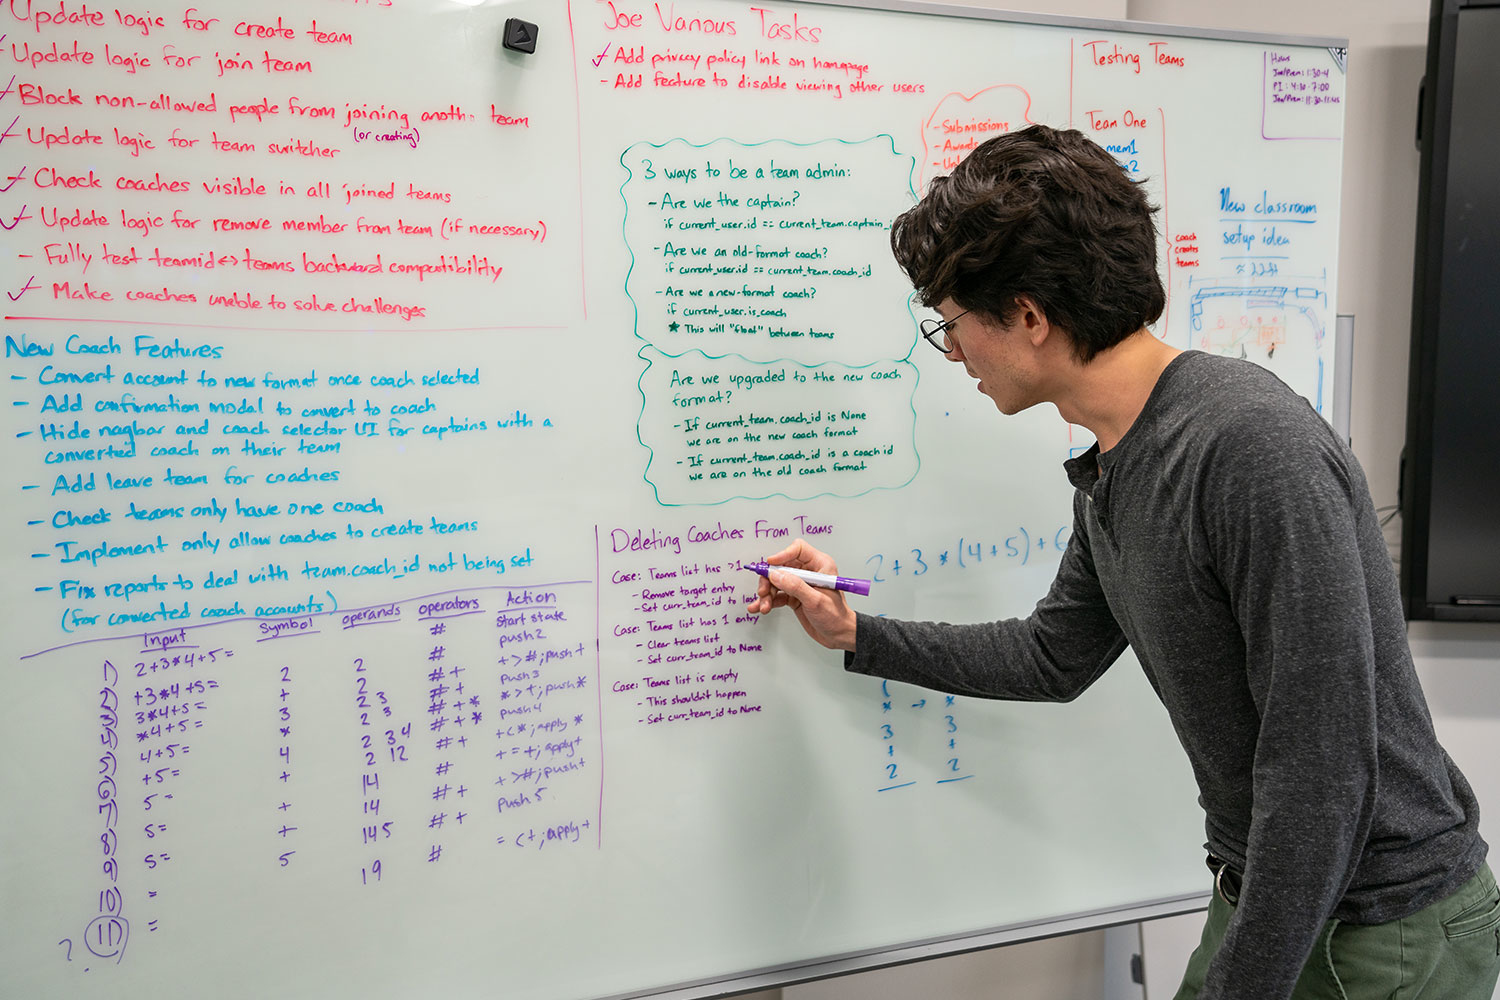 Update logic for create team
Update logic for join team
Block non-allowed people from joining anoth team
(or creating)
Update logic for team switcher
Check coaches visible in all joined teams
Update logic for remove member from team (if necessary)
- Fully test teamid<->teams backward compatibility
Make coaches unable to solve challenges
New Coach Features
- Convert account to new format once coach selected
- Add confirmation modal to convert to coach
- Hide nagbar and coach selector UI for captains with a
converted coach on their team
- Add leave team for coaches
- Check teams only have one coach
- Implement only allow coaches to create teams
- Fix reports to deal with team.coach_id not being set
(for converted coach accounts)
Input Symbol operands operators Action
1) 2+3*4+5= # start state
2) +3*4+5= 2 2 # push 2
3) 3*4+5= + 2 # + + > #; push +
4) *4+5= 3 2 3 # + push 3
5) 4+5= * 2 3 # + * * > +; push *
6) +5= 4 2 3 4 # + * push 4
7) 5= + 2 12 # + + < *; apply *
8) 5= + 14 # + = +; apply +
9) 5= + 14 # + + > #; push +
10) = 5 14 5 # + push 5
? 11) = 19 # = < +; apply +
Joe Various Tasks
Add privacy policy link on homepage
- Add feature to disable viewing other users
3 ways to be a team admin:
- Are we the captain?
if current_user.id == current_team.captain_i
- Are we an old-format coach?
if current_user.id == current_team.coach_id
- Are we a new-format coach?
if current_user.is_coach
★ This will "float" between teams
Are we upgraded to the new coach
format?
- If current_team.coach_id is None
we are on the new coach format
- If current_team.coach_id is a coach id
we are on the old coach format
Deleting Coaches From Teams
Case: Teams list has >1
- Remove target entry
- Set curr_team_id to last
Case: Teams list has 1 entry
- Clear teams list
- Set curr_team_id to None
Case: Teams list is empty
- This shouldn't happen
- Set curr_team_id to None
- Submissions
2+3*(4+5)+6
* → *
3 3
+ +
2 2
Testing Teams
Team One
mem1
2
coach
creates
teams
Hours
PI: 4:30-7:00
New classroom
setup idea
≈ 22ft